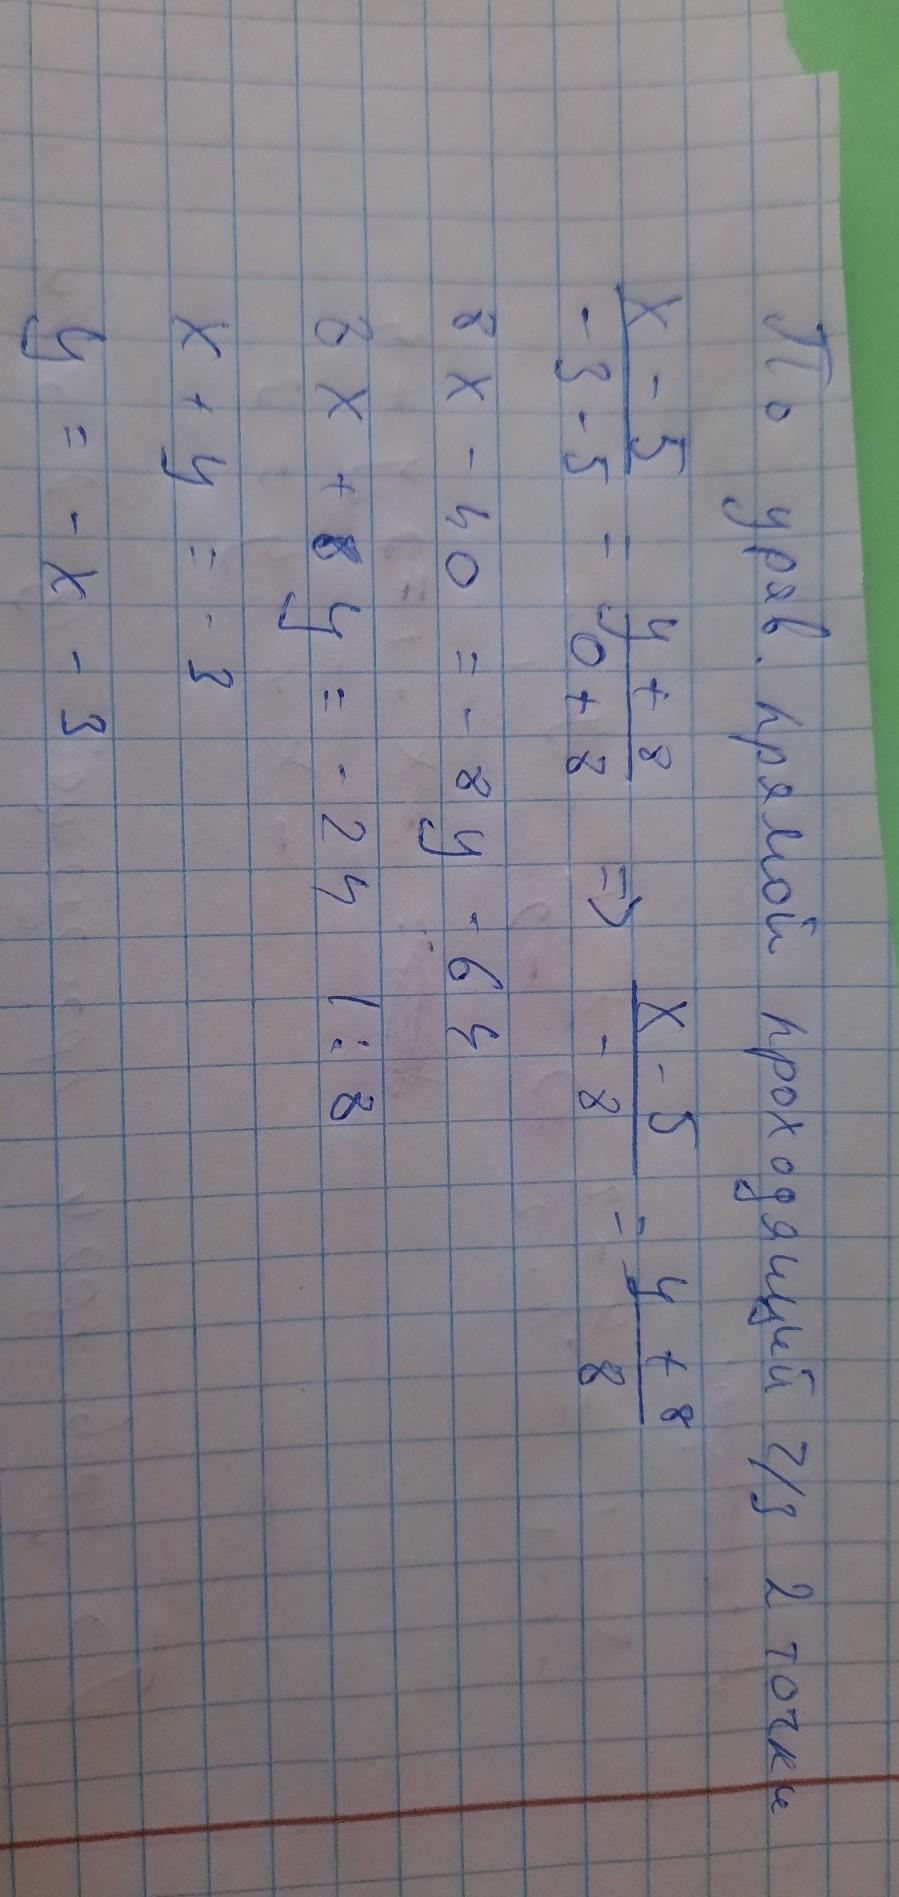 По урав. прямой проходящий ч/з 2 точки
x - 5 / -3 - 5 = y + 8 / 0 + 8 => x - 5 / -8 = y + 8 / 8
8x - 40 = -8y - 64
8x + 8y = -24 | : 8
x + y = -3
y = -x - 3